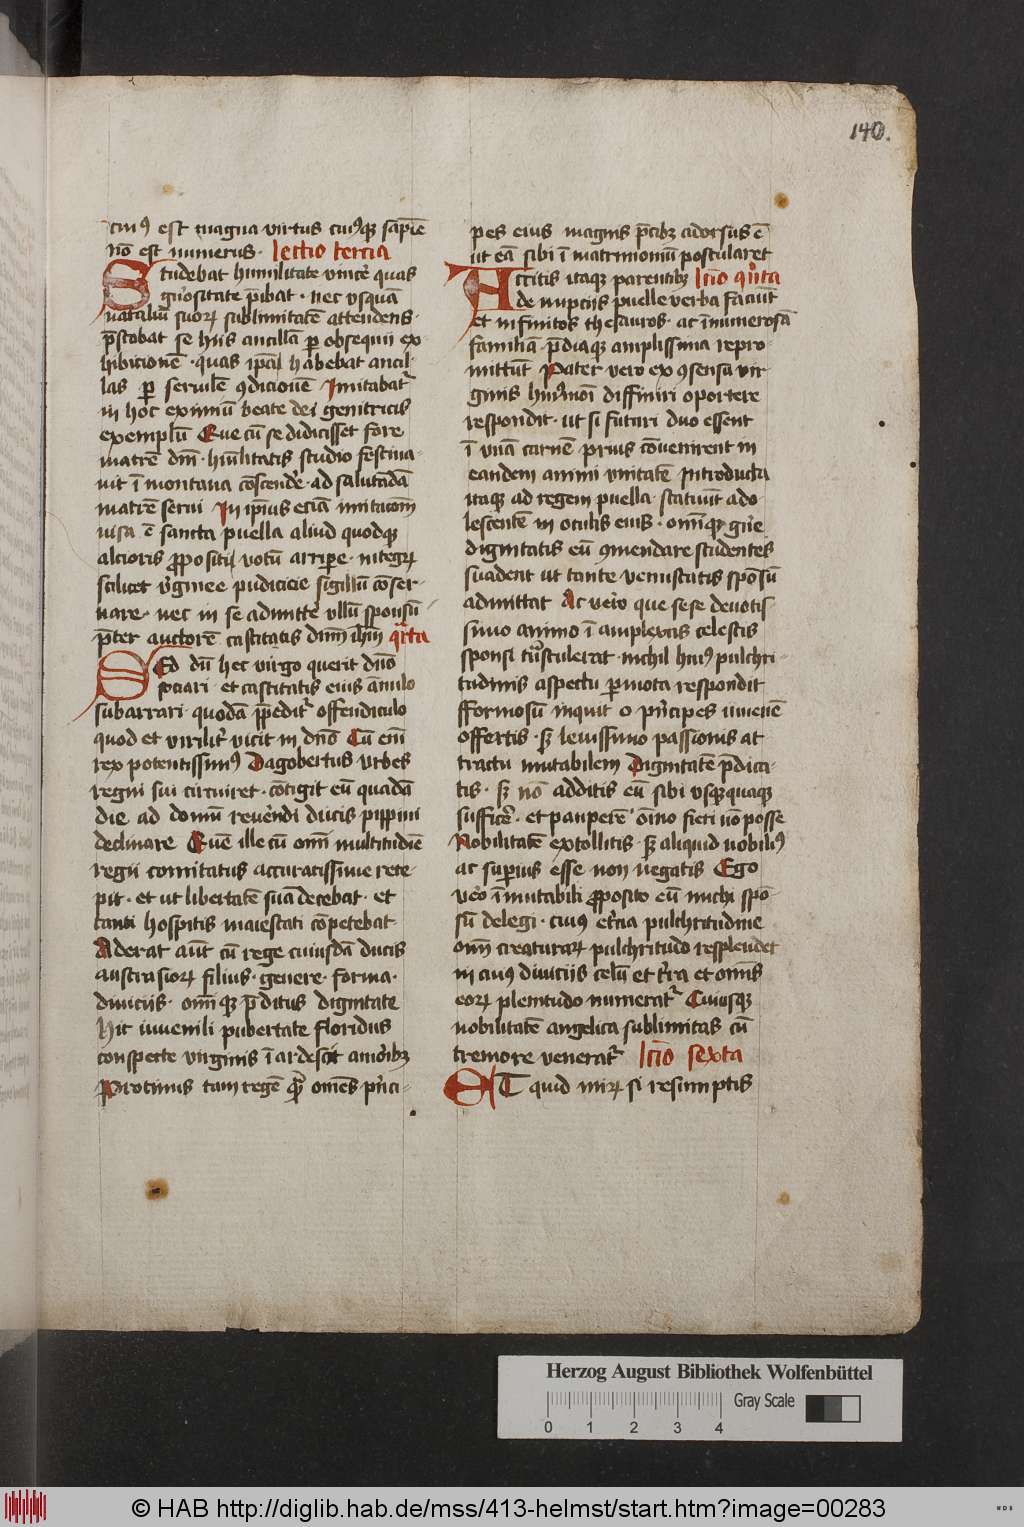 140.
cui9 est magna virtus cui9q3 sapīe
nō est numerus · lectio tercia
Studebat humilitate vincere quas
gn̄ositate p̄ibat · nec vsquā
nataliū suorum sublimitatē attendens ·
p̄stabat se hiis ancillā per obsequii ex
hibicionē · quas ip̄a habebat ancil-
las per seruilē 9dicionē Imitabat᷑
in hoc eximiū beate dei genitricis
exemplū Que cū se didicisset fore
matrē dn̄i · hūilitatis studio festina-
uit ī montana cōscende᷑ · ad salutādā
matrē serui In ip̄ius eciā imitacōm̄
uisa ē sancta puella aliud quodq3
alcioris propositi votū arripe · integrum
scilicet v᷑ginee pudicicie sigillū cōser-
uare · nec in se admitte᷑ vllū sponsū
p̄ter auctorē castitatis dn̄m ihm̄ qr̄ta
Sed dū hec virgo querit dn̄o
sociari · et castitatis eius ānulo
subarrari · quodā p̄pedit᷑ offendiculo
quod et virilit᷑ vicit in dn̄o Cū em̄
rex potentissim9 Dagobertus vrbes
regni sui circuiret · cōtigit eū quadā
die ad domū reue᷑ndi ducis pippini
declinare Quē ille cū om̄i multitudīe
regii comitatus accuratissime rece-
pit · et ut libertatē suā decebat · et
tanti hospitis maiestati cōpetebat
Aderat aūt cū rege cuiusdā ducis
austrasiorum filius · genere · forma ·
diuiciis · om̄iq3 p̄ditus dignitate
Hic iuuenili pubertate floridus
conspecte virginis ī ardescit amorib3
Protinus tam regē quā om̄es p᷑nci-
pes eius magnis p̄cib3 adorsus ē
ut eā sibi ī matrimoniū postularet
Accitis itaque parentib3 lc̄io qu᷑ta
de nupciis puelle verba faciūt
et infinitos thesauros · ac īnumerosā
familiā · p̄diaq3 amplissima repro-
mittūt Pater vero ex 9sensu vir-
ginis hui9mōi diffiniri oportere
respondit · ut si futuri duo essent
ī vnā carnē prius cōuenirent in
eandem animi vnitatē Introducta
itaque ad regem puella · statuūt ado-
lescentē in oculis eius · om̄iq3 gn̄e
dignitatis eū 9mendare studentes
suadent ut tante venustatis spōsū
admittat Ac vero que sese deuotis-
simo animo ī amplexus celestis
sponsi tn̄stulerat · nichil hui9 pulchri-
tudinis aspectu permota respondit
fformosū inquit o p᷑ncipes iuuenē
offertis · s3 leuissimo passionis at
tractu mutabilem Dignitatē p̄dica-
tis · s3 nō additis eū sibi vsq3quaq3
suffice᷑ · et pauperē oīno fieri nō posse
Nobilitatē extollitis · s3 aliquid nobili9
ac superius esse non negatis Ego
vero īmutabili proposito eū michi spō-
sū delegi · cuius et᷑na pulchritudine
om̄i creaturarum pulchritudo resplendet
in cuius diuiciis celū et t᷑ra et om̄is
eorum plenitudo numerat᷑ Cuiusq3
nobilitatē angelica sublimitas cū
tremore venerat᷑ lc̄io sexta
ET quid mirum si resumptis
Herzog August Bibliothek Wolfenbüttel
Gray Scale
0 1 2 3 4
© HAB http://diglib.hab.de/mss/413-helmst/start.htm?image=00283